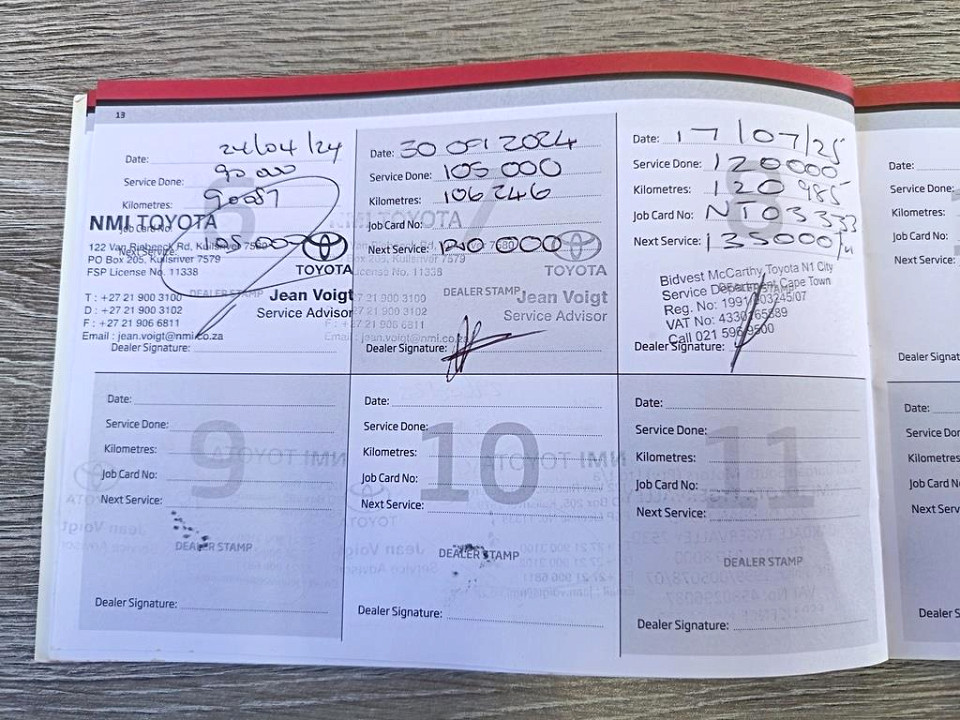 13
Date: 24/04/24
Service Done: 90 000
Kilometres: 90087
Job Card No:
Next Service: 105 000
6
NMI TOYOTA
122 Van Riebeeck Rd, Kuilsriver 7580
PO Box 205, Kuilsriver 7579
FSP License No. 11338
TOYOTA
DEALER STAMP
T : +27 21 900 3100
D : +27 21 900 3102
F : +27 21 906 6811
Email : jean.voigt@nmi.co.za
Jean Voigt
Service Advisor
Dealer Signature:
Date: 30 09 2024
Service Done: 105 000
Kilometres: 106 246
Job Card No:
Next Service: 120 000
7
NMI TOYOTA
7580
7579
License No. 11338
TOYOTA
DEALER STAMP
27 21 900 3100
27 21 900 3102
21 906 6811
Email : jean.voigt@nmi.co.za
Jean Voigt
Service Advisor
Dealer Signature:
Date: 17/07/25
Service Done: 120000
Kilometres: 120 985
Job Card No: NT03333
Next Service: 135000
8
Bidvest McCarthy Toyota N1 City
Service Department Cape Town
DEALER STAMP
Reg. No: 1991/003245/07
VAT No: 4330265889
Call 021 596 9500
Dealer Signature:
Date:
Service Done:
Kilometres:
Job Card No:
Next Service:
Dealer Signat
Date:
Service Done:
Kilometres:
Job Card No:
Next Service:
9
DEALER STAMP
Dealer Signature:
Date:
Service Done:
Kilometres:
Job Card No:
Next Service:
10
DEALER STAMP
Dealer Signature:
Date:
Service Done:
Kilometres:
Job Card No:
Next Service:
11
DEALER STAMP
Dealer Signature:
Date:
Service Don
Kilometres:
Job Card N
Next Servic
Dealer S